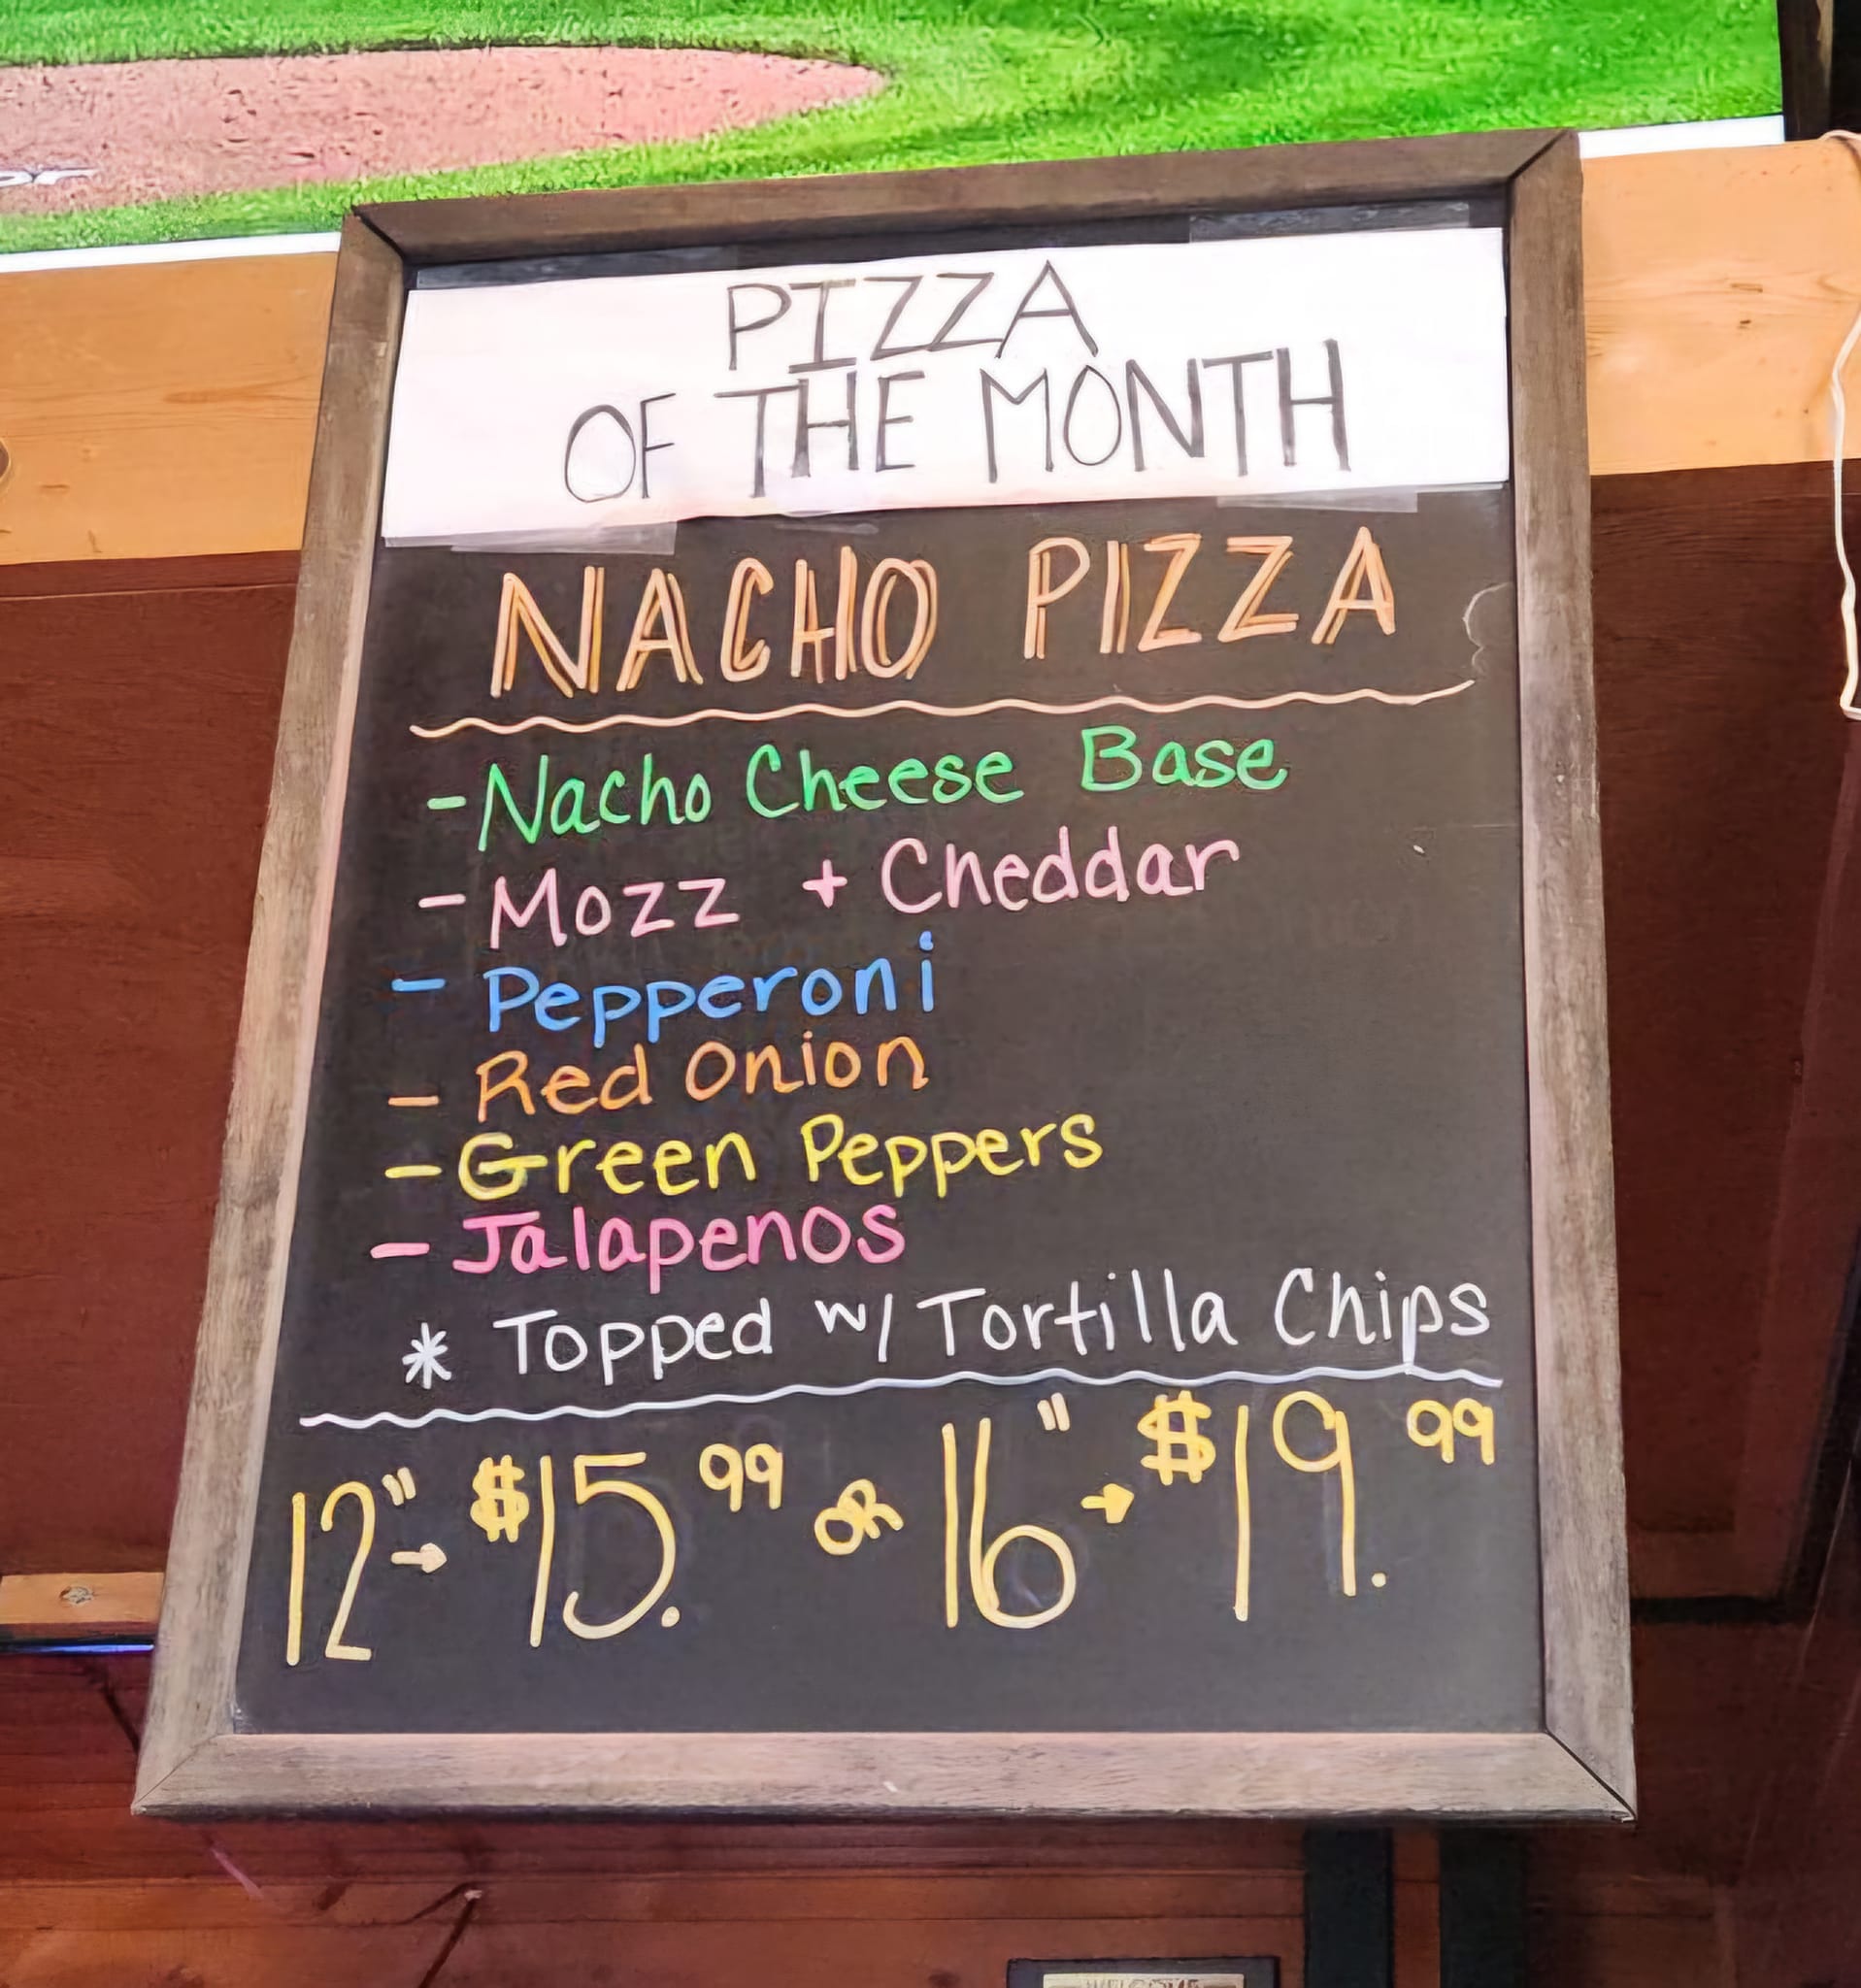 PIZZA
OF THE MONTH
NACHO PIZZA
- Nacho Cheese Base
- Mozz + Cheddar
- Pepperoni
- Red Onion
- Green Peppers
- Jalapenos
* Topped w/ Tortilla Chips
12" → $15.99 or 16" → $19.99
WELCOME